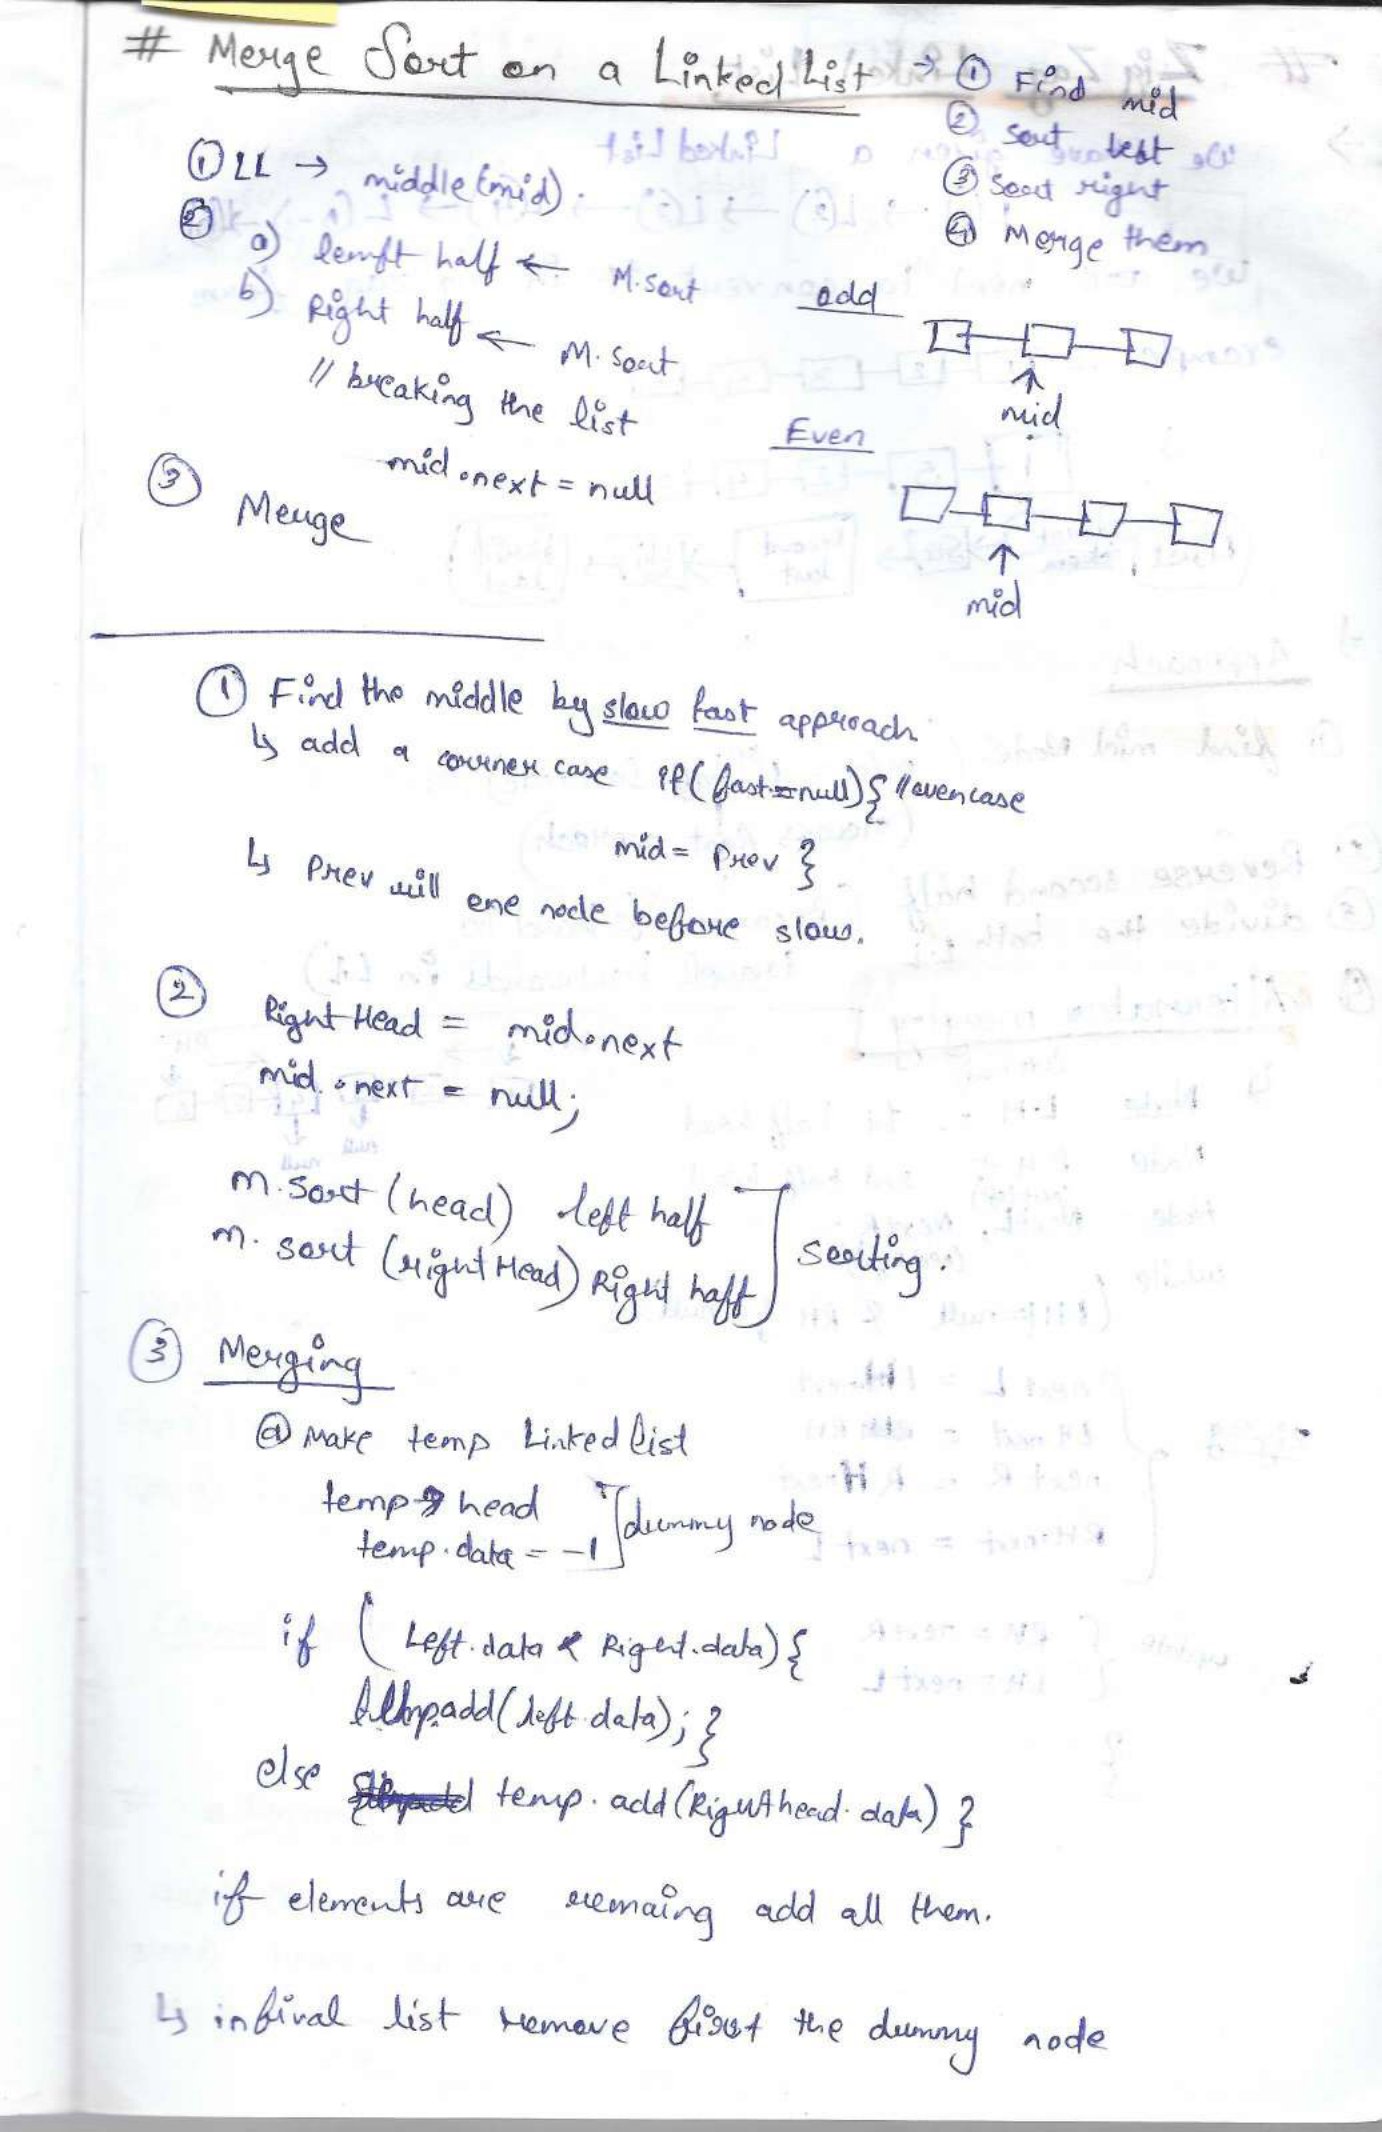 # Merge Sort on a Linked List → ① Find mid
② Sort left
③ Sort right
④ Merge them
① LL → middle (mid).
②
a) lemft half ← M.sort
b) Right half ← M. Sort
// breaking the list
mid.next = null
③ Merge
odd
mid
Even
mid
① Find the middle by slow fast approach
↳ add a corner case if( fast==null){ //even case
mid = prev }
↳ Prev will one node before slow.
② Right Head = mid.next
mid.next = null;
m.sort (head) left half
m. sort (right Head) Right half
Sorting.
③ Merging
ⓐ Make temp Linked list
temp → head
temp.data = -1
dummy node
if ( Left.data < Right.data) {
add(left.data); }
else temp.add(Right head.data) }
if elements are remaing add all them.
↳ in final list remove first the dummy node